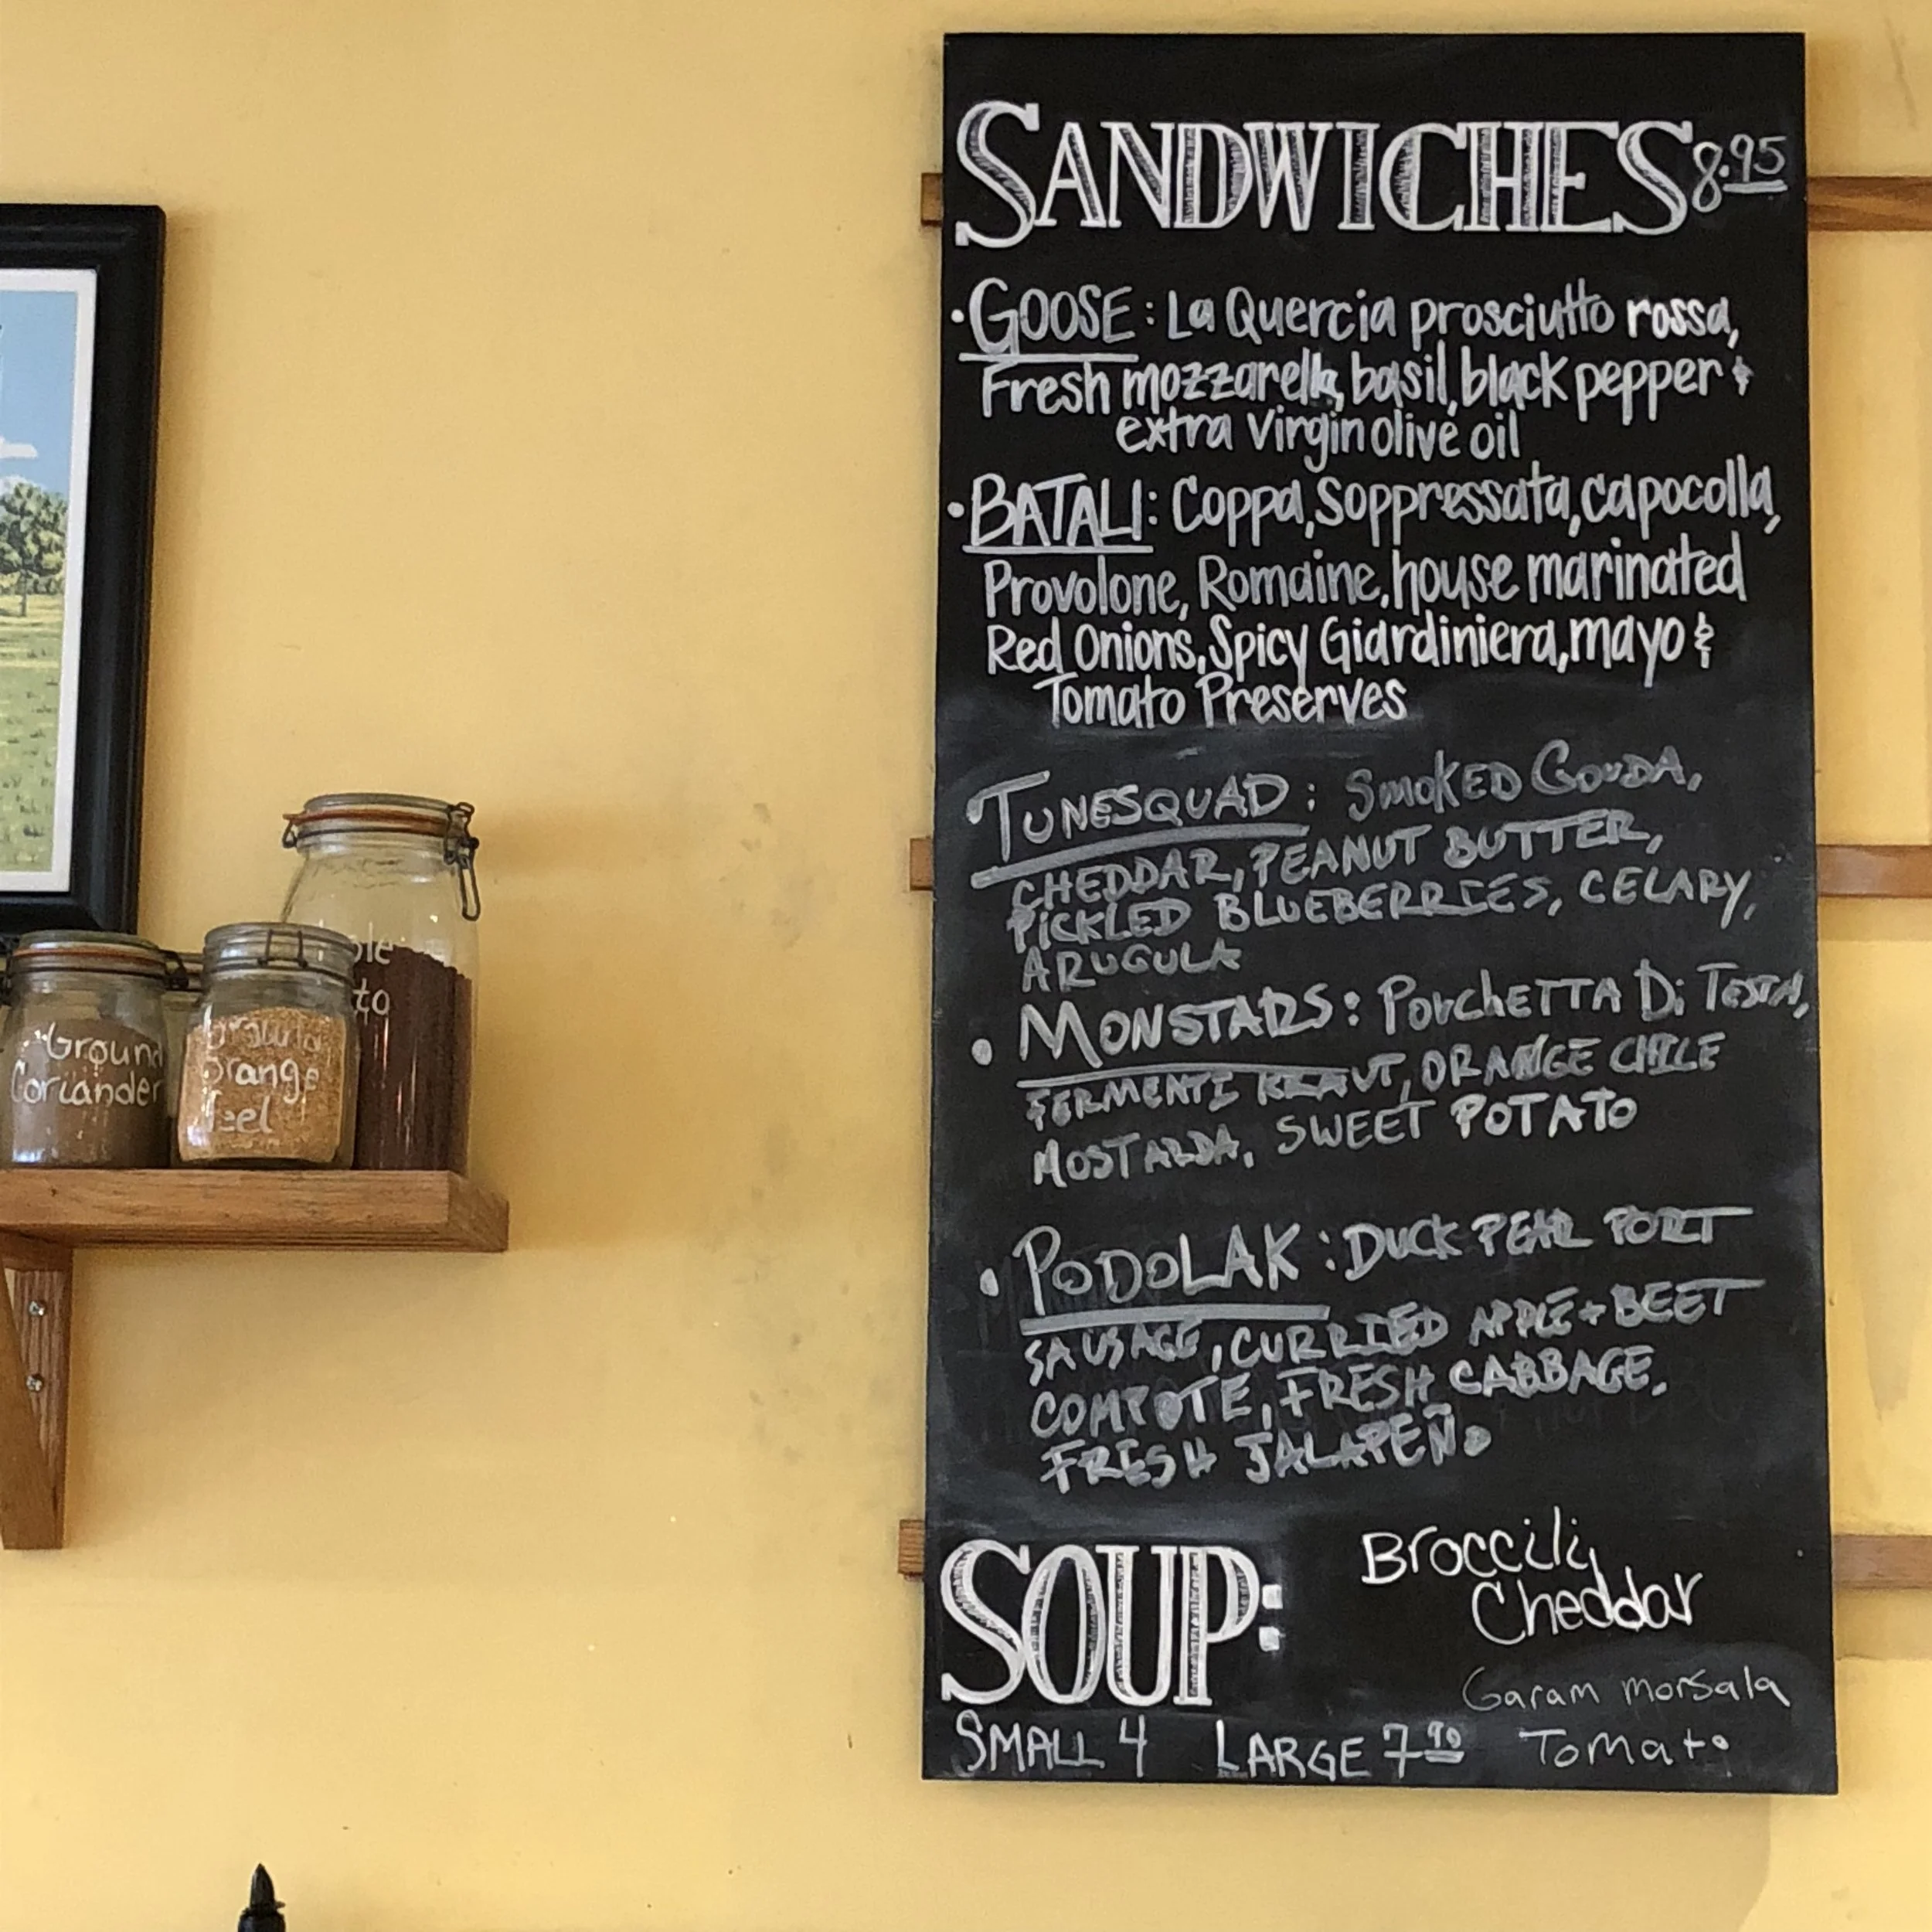 SANDWICHES 8.95
• GOOSE: La Quercia prosciutto rossa,
Fresh mozzarella, basil, black pepper &
extra virgin olive oil
• BATALI: Coppa, Soppressata, capocolla,
Provolone, Romaine, house marinated
Red Onions, Spicy Giardiniera, mayo &
Tomato Preserves
• TUNESQUAD: SMOKED GOUDA,
CHEDDAR, PEANUT BUTTER,
PICKLED BLUEBERRIES, CELARY,
ARUGULA
• MONSTARS: PORCHETTA DI TESTA,
FERMENTE KRAUT, ORANGE CHILE
MOSTARDA, SWEET POTATO
• PODOLAK: DUCK PEAR PORT
SAUSAGE, CURRIED APPLE + BEET
COMPOTE, FRESH CABBAGE.
FRESH JALAPEÑO
SOUP:
Broccili
Cheddar
Garam morsala
Tomato
SMALL 4 LARGE 7.90
Ground
Coriander
Orange
Peel